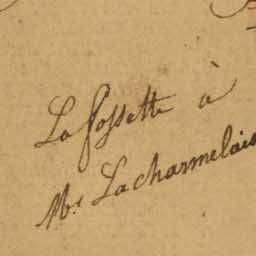 La fossette à
Mr Lacharmelais